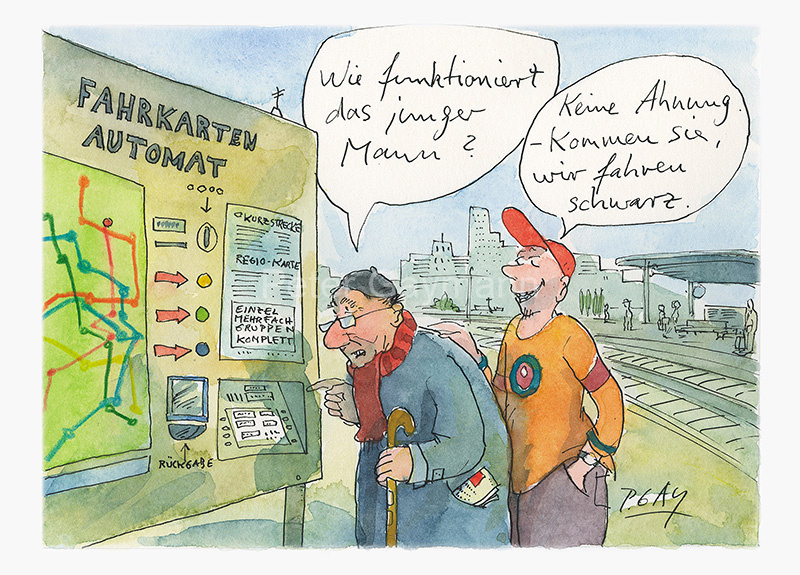 FAHRKARTEN
AUTOMAT
Wie funktioniert
das junger
Mann?
Keine Ahnung.
- Kommen Sie,
wir fahren
schwarz.
KURZSTRECKE
REGIO-KARTE
EINZEL
MEHRFACH
GRUPPEN
KOMPLETT
RÜCKGABE
Peter Gaymann
P. GAY